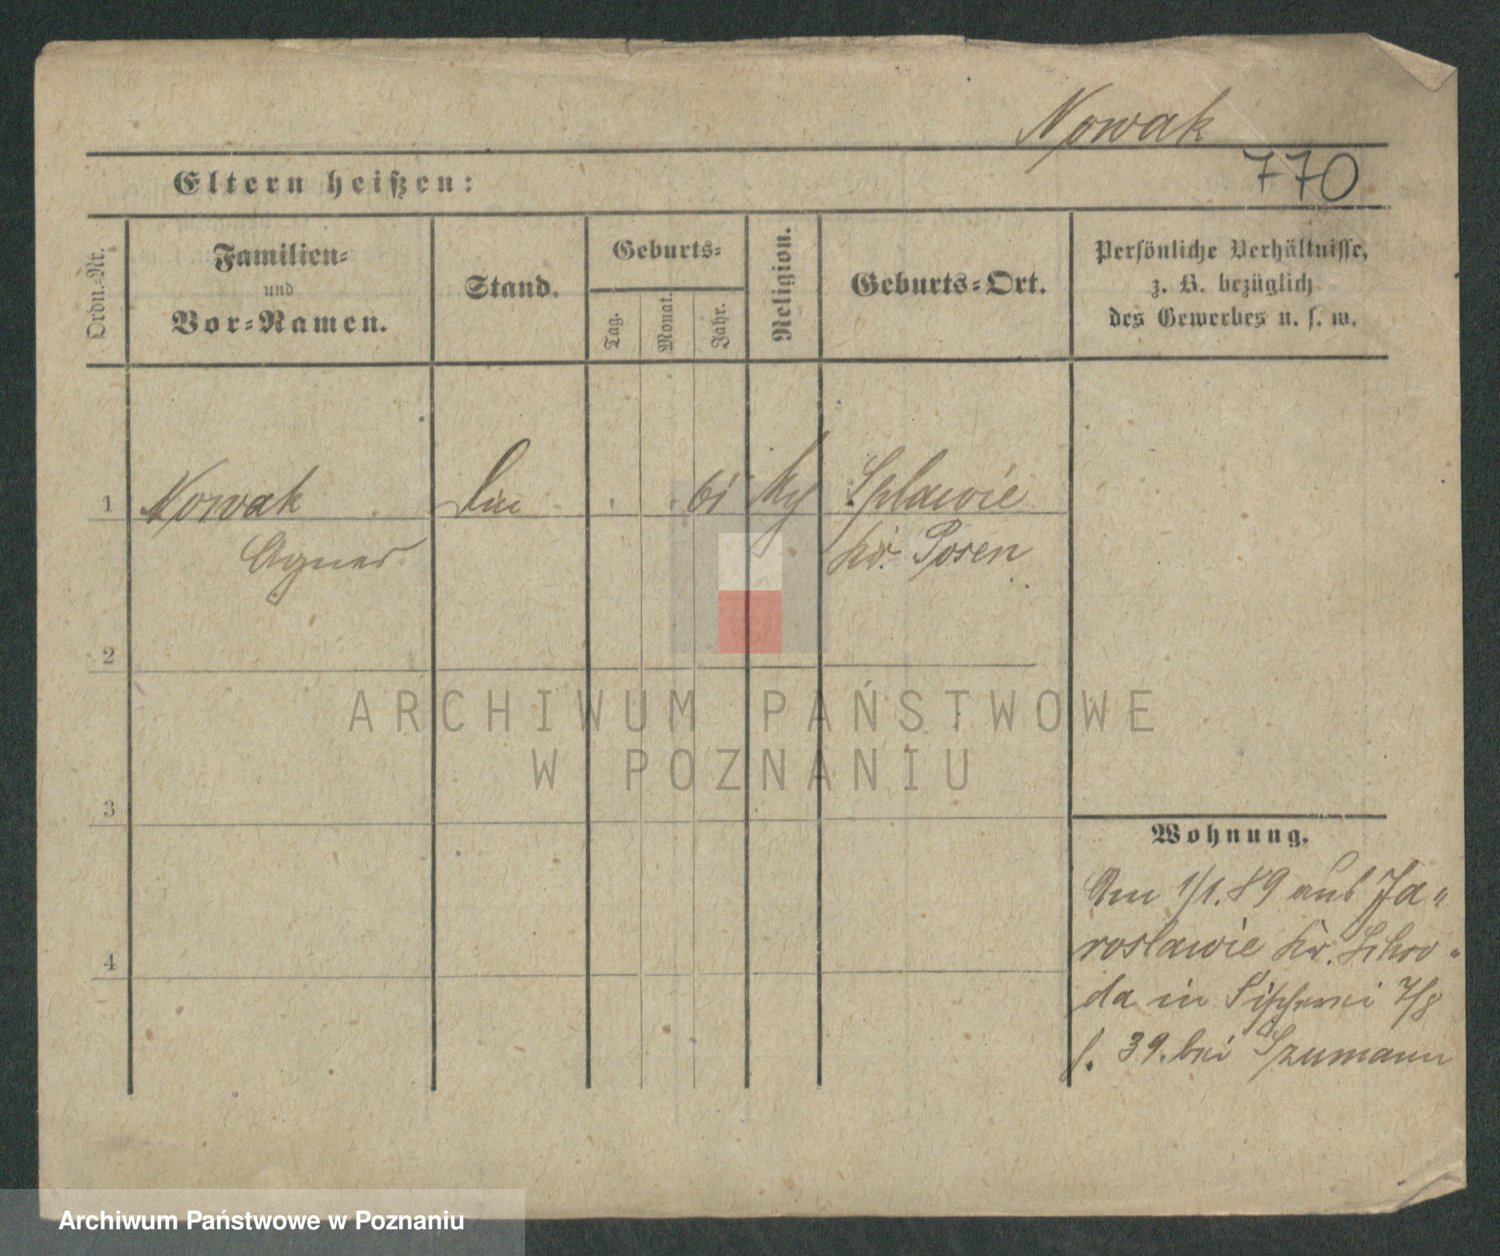 Nowak
770
Eltern heißen:
Ordn.-Nr.
Familien-
und
Vor-Namen.
Stand.
Geburts-
Tag.
Monat.
Jahr.
Religion.
Geburts-Ort.
Persönliche Verhältnisse,
z. B. bezüglich
des Gewerbes u. s. w.
1 Nowak 61 Splawie
Agnes Kr. Posen
2
3
4
ARCHIWUM PAŃSTWOWE
W POZNANIU
Wohnung.
Am 1/1.89 aus Ja-
roslawie Kr. Schro-
da in Fischerei 7/8
39. bei Szumann
Archiwum Państwowe w Poznaniu